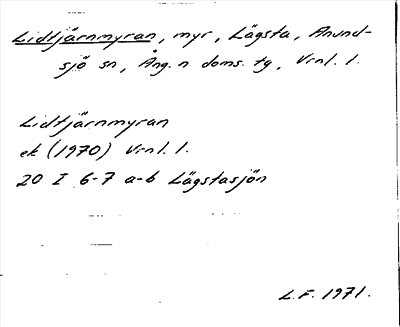 Lidtjärnmyran, myr, Lägsta, Anund-
sjö sn, Ång. n doms. tg, Vrnl. l.
Lidtjärnmyran
ek (1970) Vrnl. l.
20 I 6-7 a-b Lägstasjön
L.F. 1971.